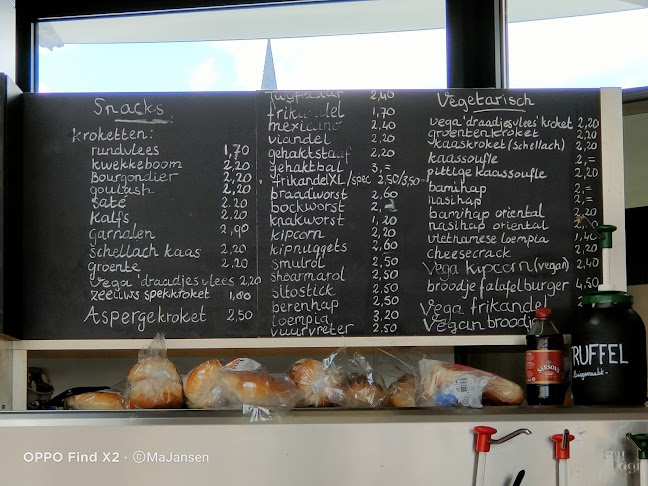 Snacks
kroketten:
rundvlees 1,70
kwekkeboom 2,20
Bourgondier 2,20
goulash 2,20
saté 2.20
kalfs 2.20
garnalen 2,90
schellach kaas 2,20
groente 2.20
vega 'draadjesvlees 2,20
zeeuws spekkroket
Aspergekroket 2,50
2,40
frikandel 1,70
mexicano 2,40
viandel 2,20
gehaktstaaf 2,20
gehaktbal 3,=
frikandel XL/spec 2,50/3,50
braadworst 2,60
bockworst
knakworst 1,20
kipcorn 2,20
kipnuggets 2,60
smulrol 2,50
shoarmarol 2,50
sitostick 2,50
berenhap 2,50
loempia 3,20
vuurvreter 2,50
Vegetarisch
vega 'draadjesvlees' kroket 2,20
groentenkroket 2,20
kaaskroket (schellach) 2,20
kaassoufle 2,=
pittige kaassoufle 2,20
bamihap 2,=
nasihap 2,=
bamihap oriental 2,20
nasihap oriental 2,20
vietnamese loempia 1,40
cheesecrack 2,20
Vega kipcorn (vegan) 2,40
broodje falafelburger 4,50
Vega frikandel
Vegan broodje
SARSON'S
TRUFFEL
OPPO Find X2 · ©MaJansen